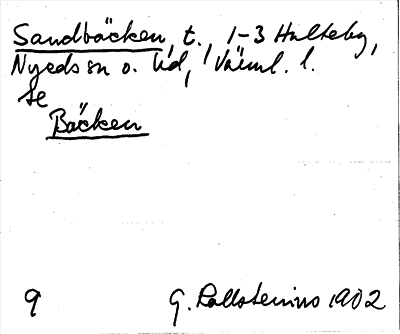 Sandbäcken, t., 1-3 Hulteby,
Nyeds sn o. hd, Värml. l.
Se
Bäcken
9 G. Kallstenius 1902